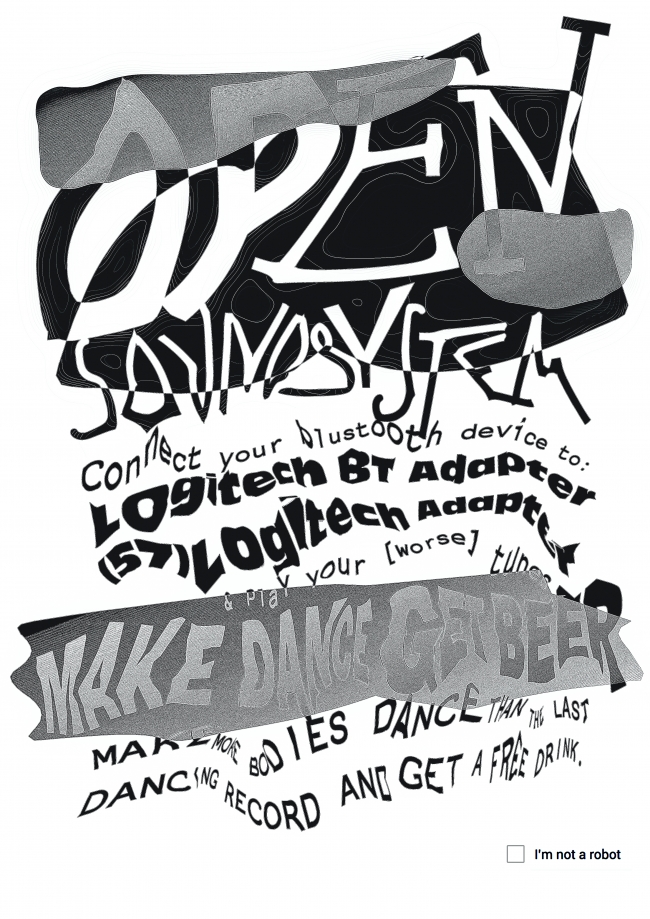 OPEN
SOUNDSYSTEM
Connect your blustooth device to:
Logitech BT Adapter
(57)Logitech Adapter
& Play your [worse]
MAKE DANCE GET BEER
MAKE MORE BODIES DANCE THAN THE LAST
DANCING RECORD AND GET A FREE DRINK.
I'm not a robot